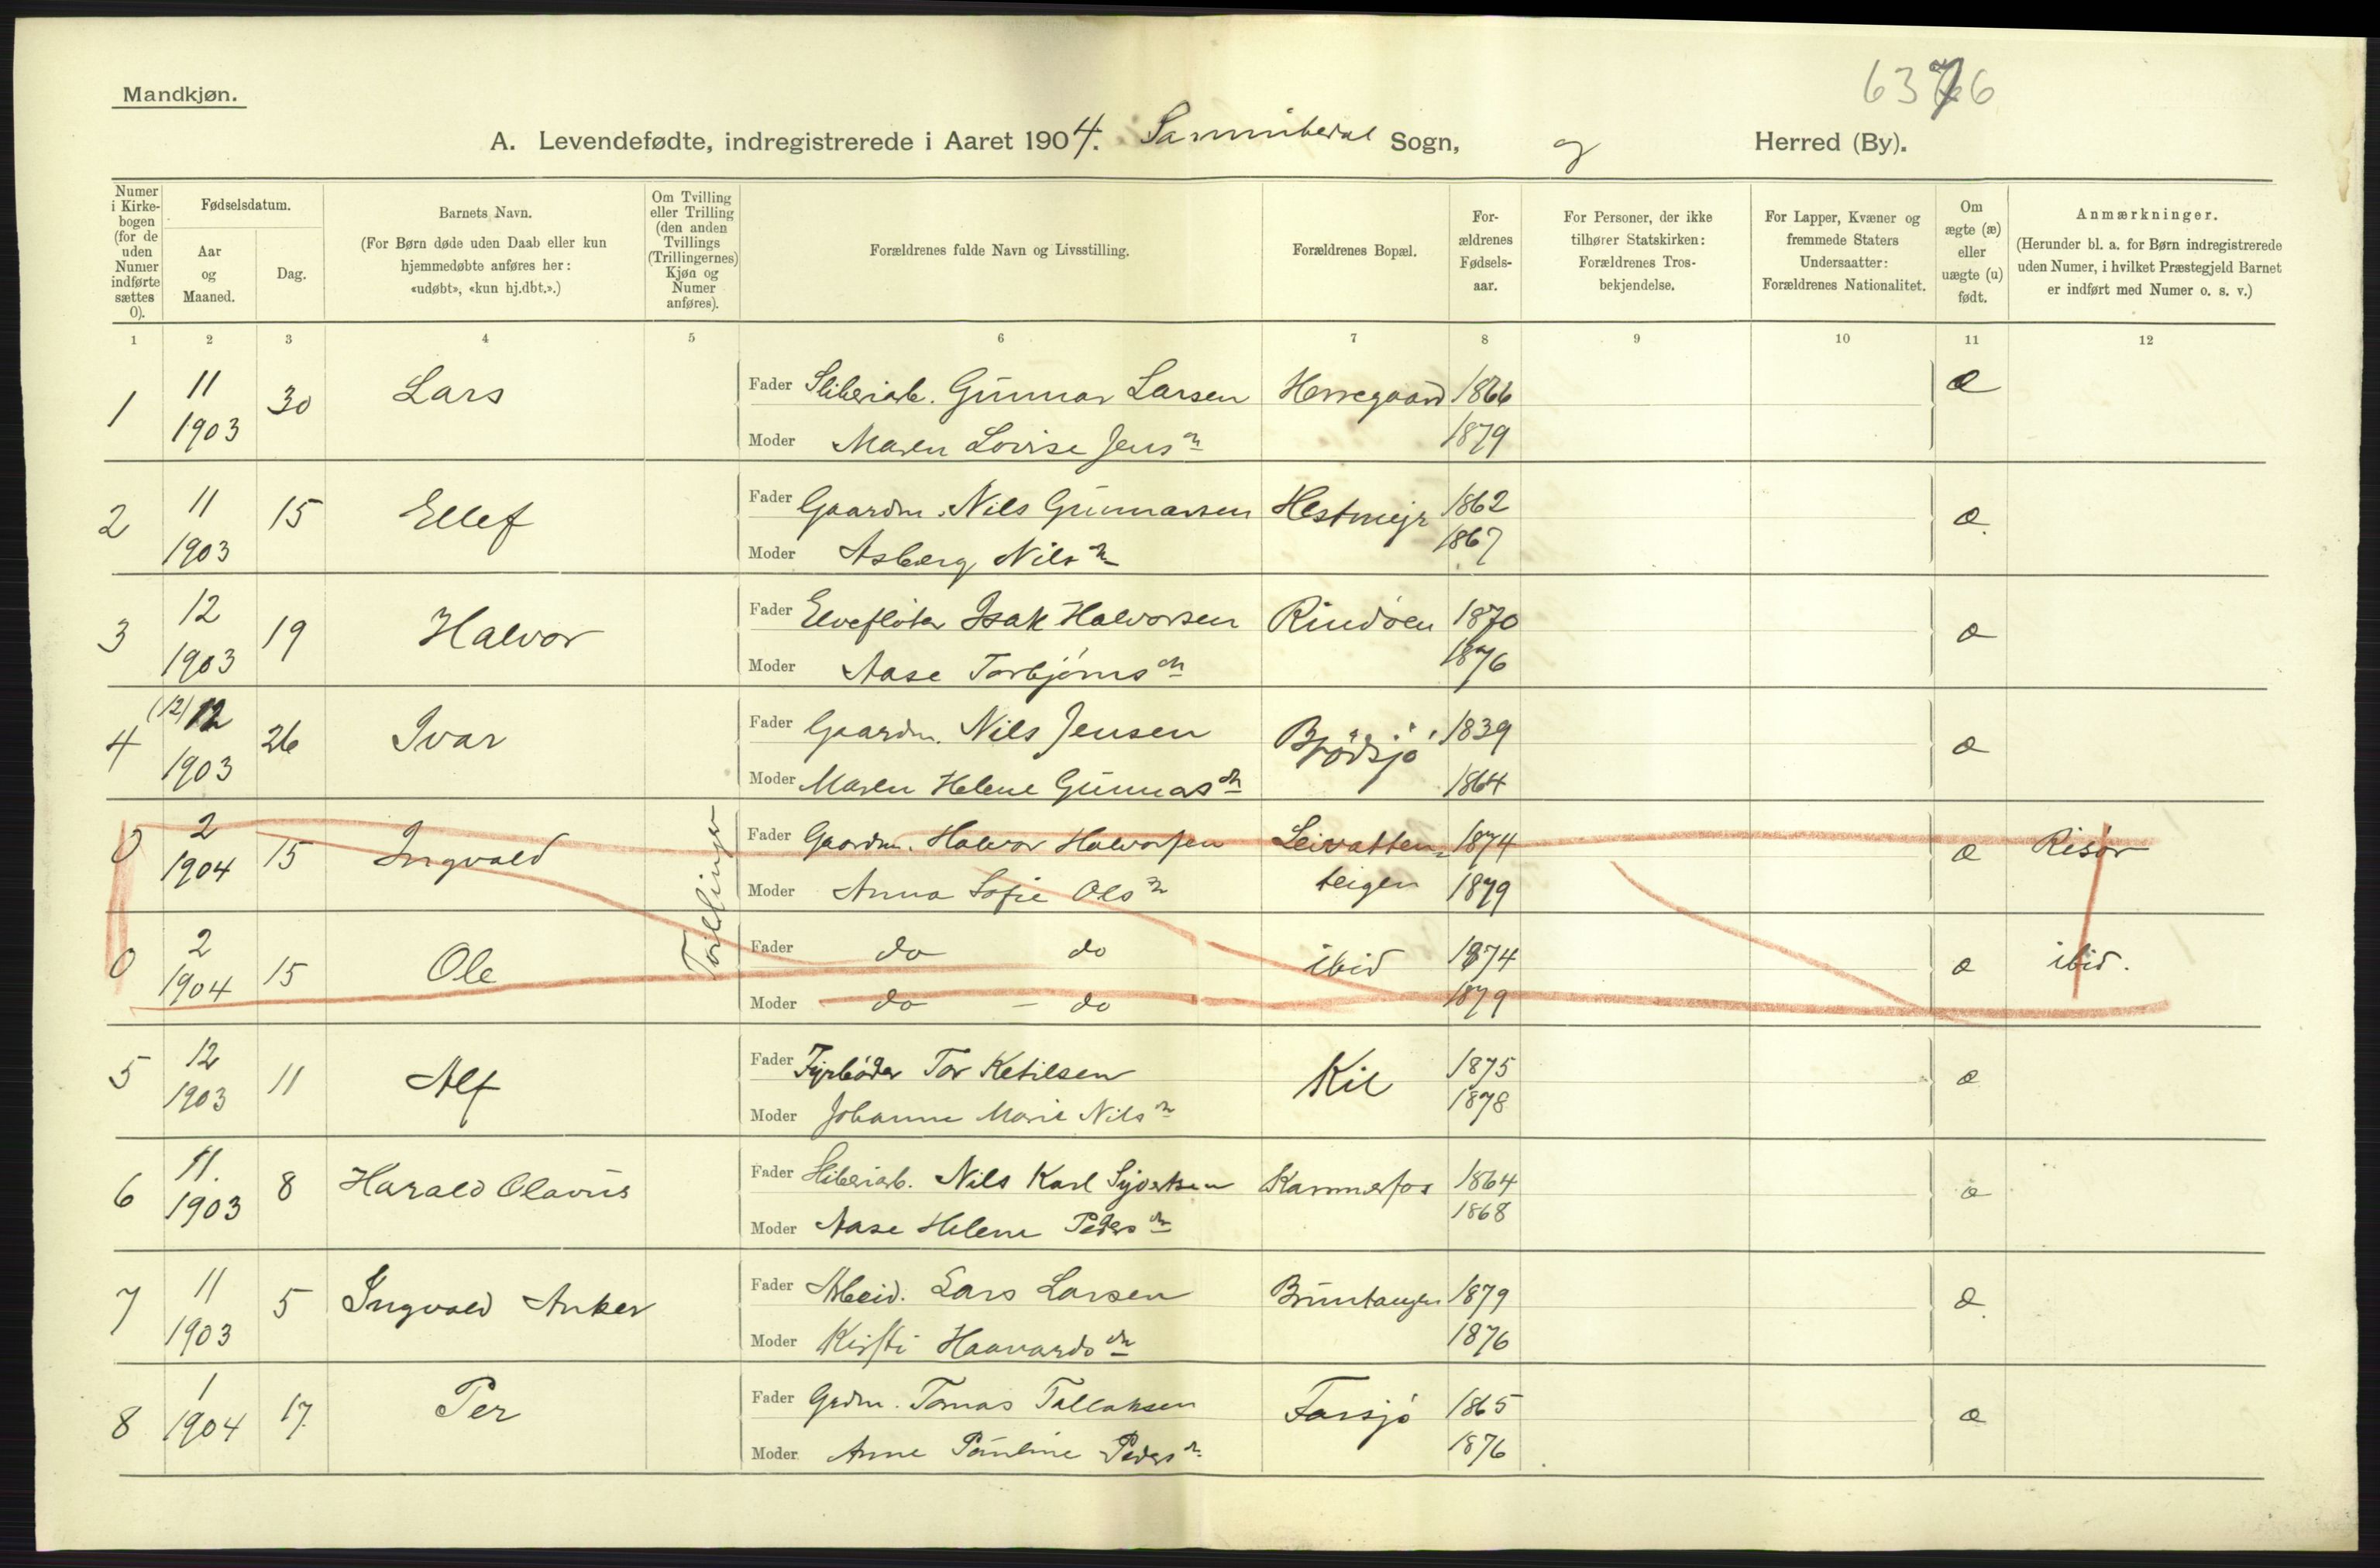 Mandkjøn.
6376
A. Levendefødte, indregistrerede i Aaret 1904. Sannikedal Sogn, og Herred (By).
Numer i Kirkebogen (for de uden Numer indførte sættes 0).
Fødselsdatum.
Aar og Maaned.
Dag.
Barnets Navn.
(For Børn døde uden Daab eller kun hjemmedøbte anføres her: «udøbt», «kun hj.dbt.».)
Om Tvilling eller Trilling (den anden Tvillings (Trillingernes) Kjøn og Numer anføres).
Forældrenes fulde Navn og Livsstilling.
Forældrenes Bopæl.
Forældrenes Fødselsaar.
For Personer, der ikke tilhører Statskirken: Forældrenes Trosbekjendelse.
For Lapper, Kvæner og fremmede Staters Undersaatter: Forældrenes Nationalitet.
Om ægte (æ) eller uægte (u) født.
Anmærkninger.
(Herunder bl. a. for Børn indregistrerede uden Numer, i hvilket Præstegjeld Barnet er indført med Numer o. s. v.)
1 2 3 4 5 6 7 8 9 10 11 12
1 11 1903 30 Lars Fader Sliberiarb. Gunnar Larsen Herregaard 1866 æ
Moder Maren Lovise Jensdn 1879
2 11 1903 15 Ellef Fader Gaardm. Nils Gunnarsen Hestmyr 1862 æ
Moder Asberg Nilsdn 1867
3 12 1903 19 Halvor Fader Elvefløter Isak Halvorsen Rindøen 1870 æ
Moder Aase Torbjørnsdn 1876
4 (12) 12 1903 26 Ivar Fader Gaardm. Nils Jensen Brødsjø 1839 æ
Moder Maren Helene Gunnasdn 1864
0 2 1904 15 Ingvald Tvillinger Fader Gaardm. Halvor Halvorsen Leivatten- 1874 æ Risør
Moder Anna Sofie Olsdn teigen 1879
0 2 1904 15 Ole Fader do do ibid 1874 æ ibid.
Moder do - do 1879
5 12 1903 11 Alf Fader Fyrbøder Tor Ketilsen Kil 1875 æ
Moder Johanne Marie Nilsdn 1878
6 11. 1903 8 Harald Olavus Fader Sliberiarb. Nils Karl Syvertsen Kammerfos 1864 æ
Moder Aase Helene Pedersdn 1868
7 11 1903 5 Ingvald Anker Fader Arbeid. Lars Larsen Bruntangen 1879 æ
Moder Kirsti Haavardsdn 1876
8 1 1904 17. Per Fader Grdm. Tomas Tallaksen Farsjø 1865 æ
Moder Anne Pauline Pedersdn 1876